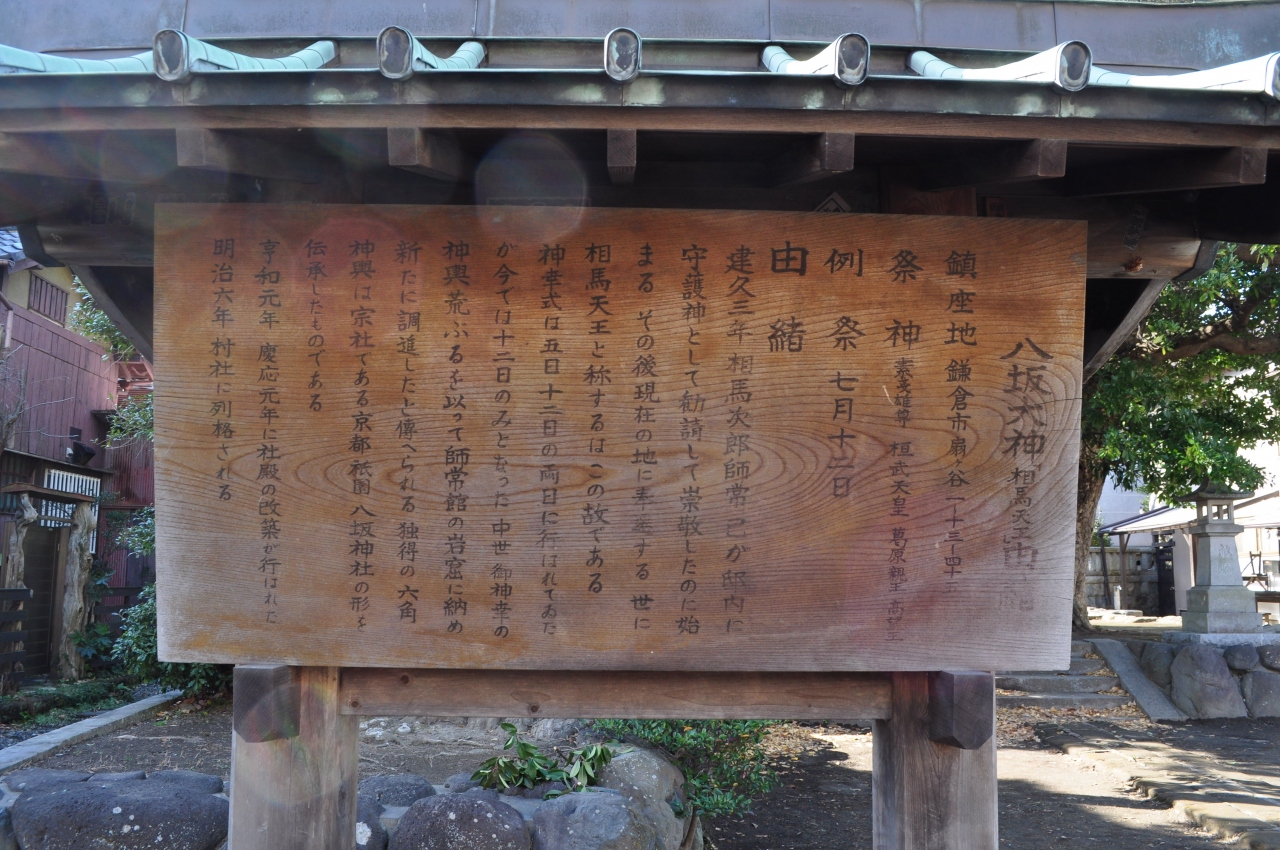 八坂大神 相馬天王由緒
鎮座地 鎌倉市扇ヶ谷一ー十三ー四十五
祭神 素戔雄尊 桓武天皇 葛原親王 高望王
例祭 七月十二日
由緒
建久三年 相馬次郎師常 己が邸内に
守護神として勧請して崇敬したのに始
まる その後現在の地に奉遷する 世に
相馬天王と称するはこの故である
神幸式は五日十二日の両日に行はれてゐた
が今では十二日のみとなった 中世 御神幸の
神輿荒ぶるを以って師常館の岩窟に納め
新たに調進したと傳へられる 独得の六角
神輿は宗社である京都祇園八坂神社の形を
伝承したものである
亨和元年 慶応元年に社殿の改築が行はれた
明治六年村社に列格される